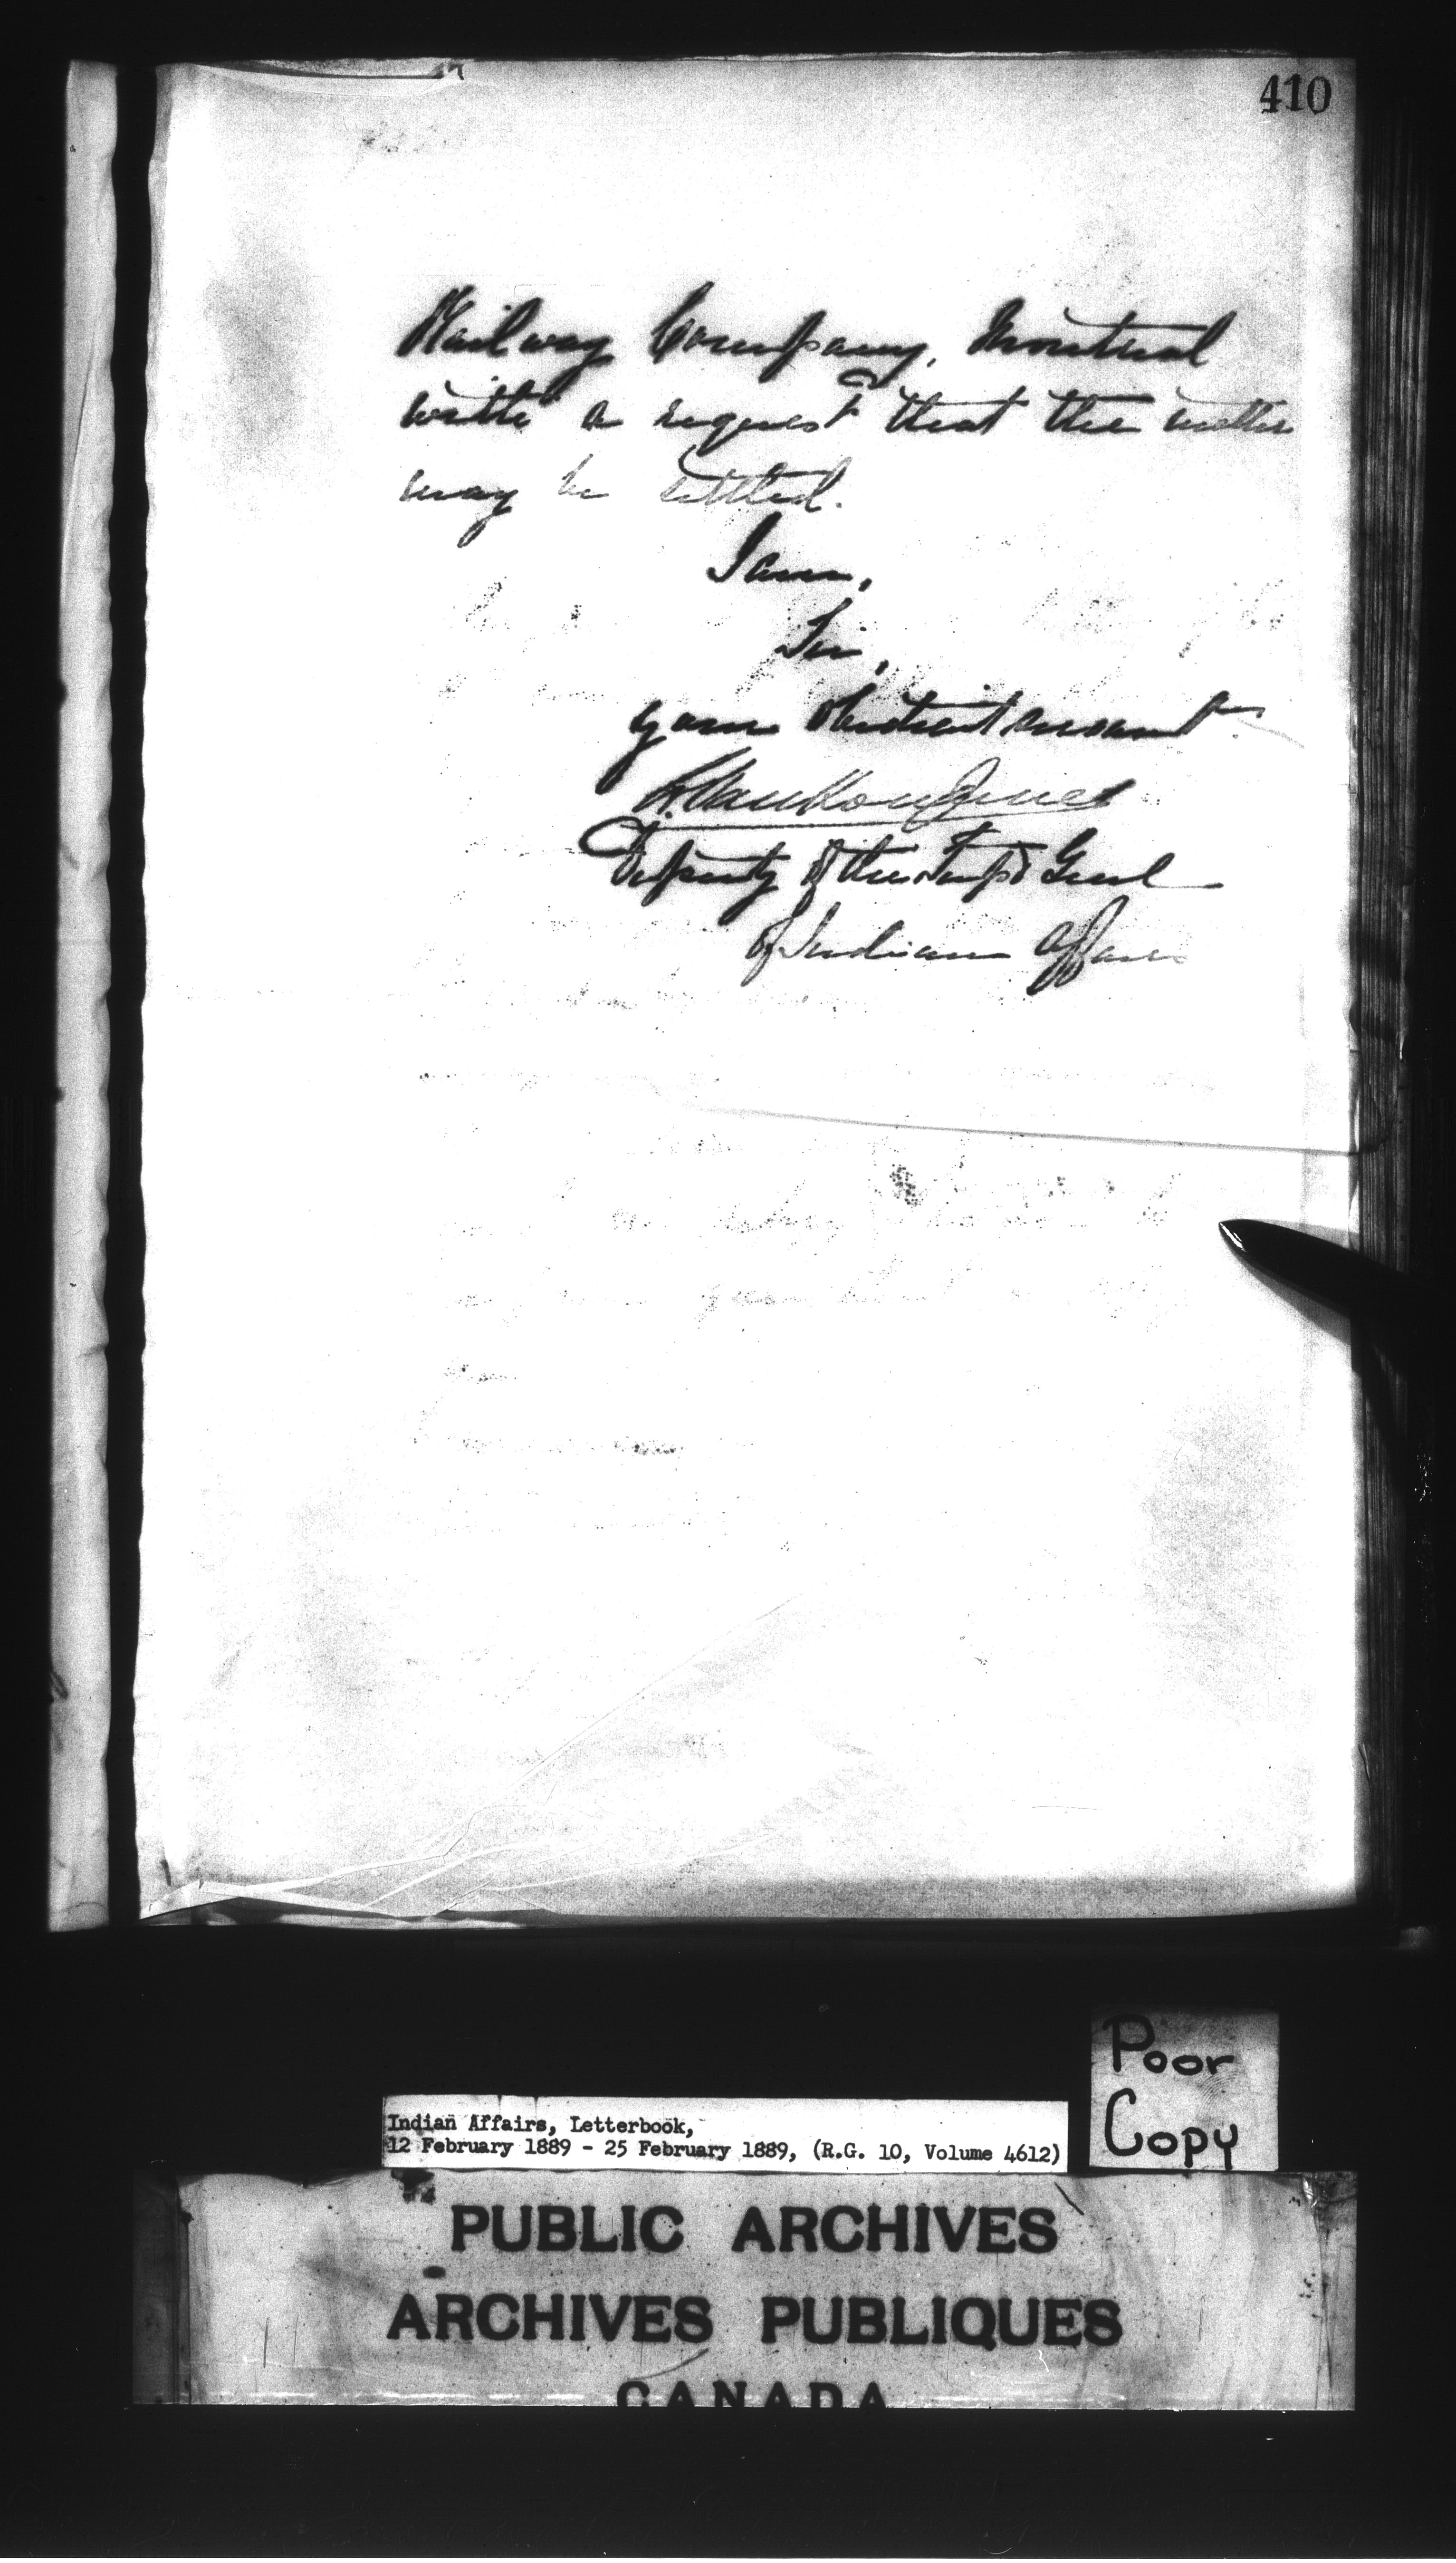 410
Railway Company, Montreal
with a request that the matter
may be settled.
I am,
Sir,
Your obedient servant
L. VanKoughnet
Deputy of the Supt Genl
of Indian Affairs
Poor
Copy
Indian Affairs, Letterbook,
12 February 1889 - 25 February 1889, (R.G. 10, Volume 4612)
PUBLIC ARCHIVES
ARCHIVES PUBLIQUES
CANADA